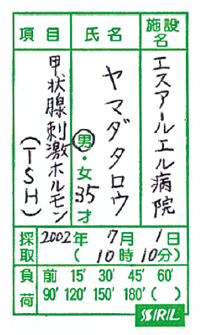 施設名
エスアールエル病院
氏名
ヤマダタロウ
男・女 35才
項目
甲状腺刺激ホルモン
(TSH)
採取 2002年 7月 1日
(10時10分)
負荷 前 15' 30' 45' 60'
90' 120' 150' 180' ( )
SRL